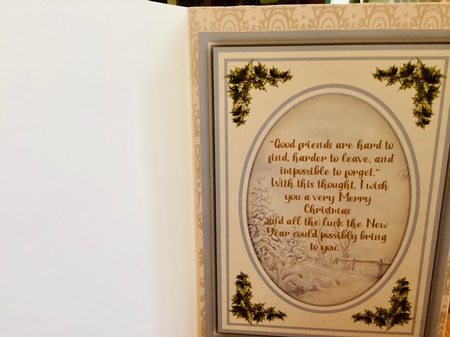 "Good friends are hard to
find, harder to leave, and
impossible to forget."
With this thought, I wish
you a very Merry
Christmas
and all the luck the New
Year could possibly bring
to you.